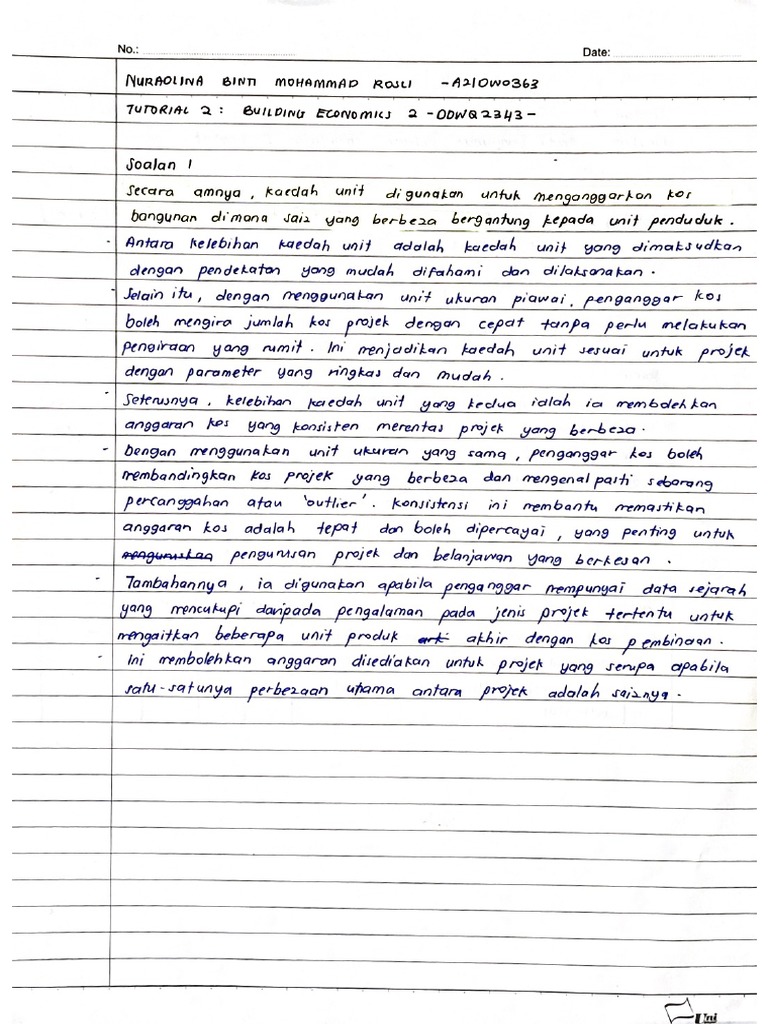 No.:
Date:
NURAOLINA BINTI MOHAMMAD ROSLI -A21DW0363
TUTORIAL 2 : BUILDING ECONOMICS 2 -DDWQ2343-
Soalan 1
Secara amnya, kaedah unit digunakan untuk menganggarkan kos
bangunan dimana saiz yang berbeza bergantung kepada unit penduduk.
- Antara kelebihan kaedah unit adalah kaedah unit yang dimaksudkan
dengan pendekatan yang mudah difahami dan dilaksanakan.
- Selain itu, dengan menggunakan unit ukuran piawai, penganggar kos
boleh mengira jumlah kos projek dengan cepat tanpa perlu melakukan
pengiraan yang rumit. Ini menjadikan kaedah unit sesuai untuk projek
dengan parameter yang ringkas dan mudah.
- Seterusnya, kelebihan kaedah unit yang kedua ialah ia membolehkan
anggaran kos yang konsisten merentas projek yang berbeza.
- Dengan menggunakan unit ukuran yang sama, penganggar kos boleh
membandingkan kos projek yang berbeza dan mengenal pasti sebarang
percanggahan atau 'outlier'. Konsistensi ini membantu memastikan
anggaran kos adalah tepat dan boleh dipercayai, yang penting untuk
pengurusan projek dan belanjawan yang berkesan.
- Tambahannya, ia digunakan apabila penganggar mempunyai data sejarah
yang mencukupi daripada pengalaman pada jenis projek tertentu untuk
mengaitkan beberapa unit produk akhir dengan kos pembinaan.
- Ini membolehkan anggaran disediakan untuk projek yang serupa apabila
satu-satunya perbezaan utama antara projek adalah saiznya.
Uni